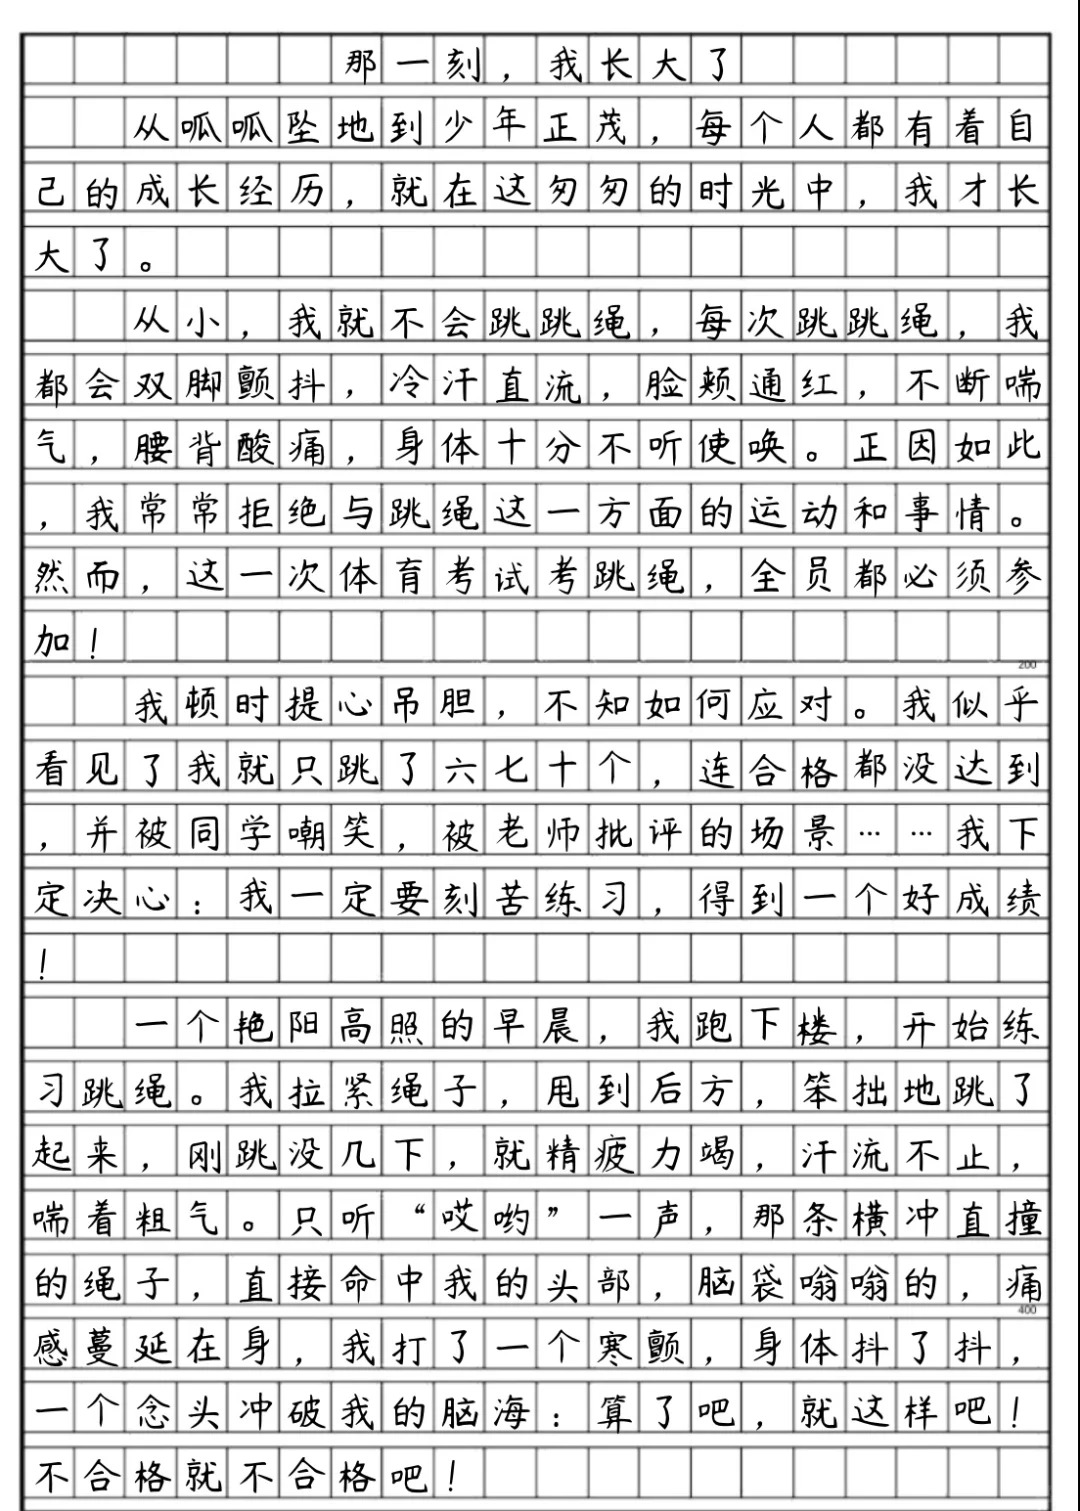 那一刻，我长大了
从呱呱坠地到少年正茂，每个人都有着自
己的成长经历，就在这匆匆的时光中，我才长
大了。
从小，我就不会跳跳绳，每次跳跳绳，我
都会双脚颤抖，冷汗直流，脸颊通红，不断喘
气，腰背酸痛，身体十分不听使唤。正因如此
，我常常拒绝与跳绳这一方面的运动和事情。
然而，这一次体育考试考跳绳，全员都必须参
加！
200
我顿时提心吊胆，不知如何应对。我似乎
看见了我就只跳了六七十个，连合格都没达到
，并被同学嘲笑，被老师批评的场景……我下
定决心：我一定要刻苦练习，得到一个好成绩
！
一个艳阳高照的早晨，我跑下楼，开始练
习跳绳。我拉紧绳子，甩到后方，笨拙地跳了
起来，刚跳没几下，就精疲力竭，汗流不止，
喘着粗气。只听“哎哟”一声，那条横冲直撞
的绳子，直接命中我的头部，脑袋嗡嗡的，痛
400
感蔓延在身，我打了一个寒颤，身体抖了抖，
一个念头冲破我的脑海：算了吧，就这样吧！
不合格就不合格吧！